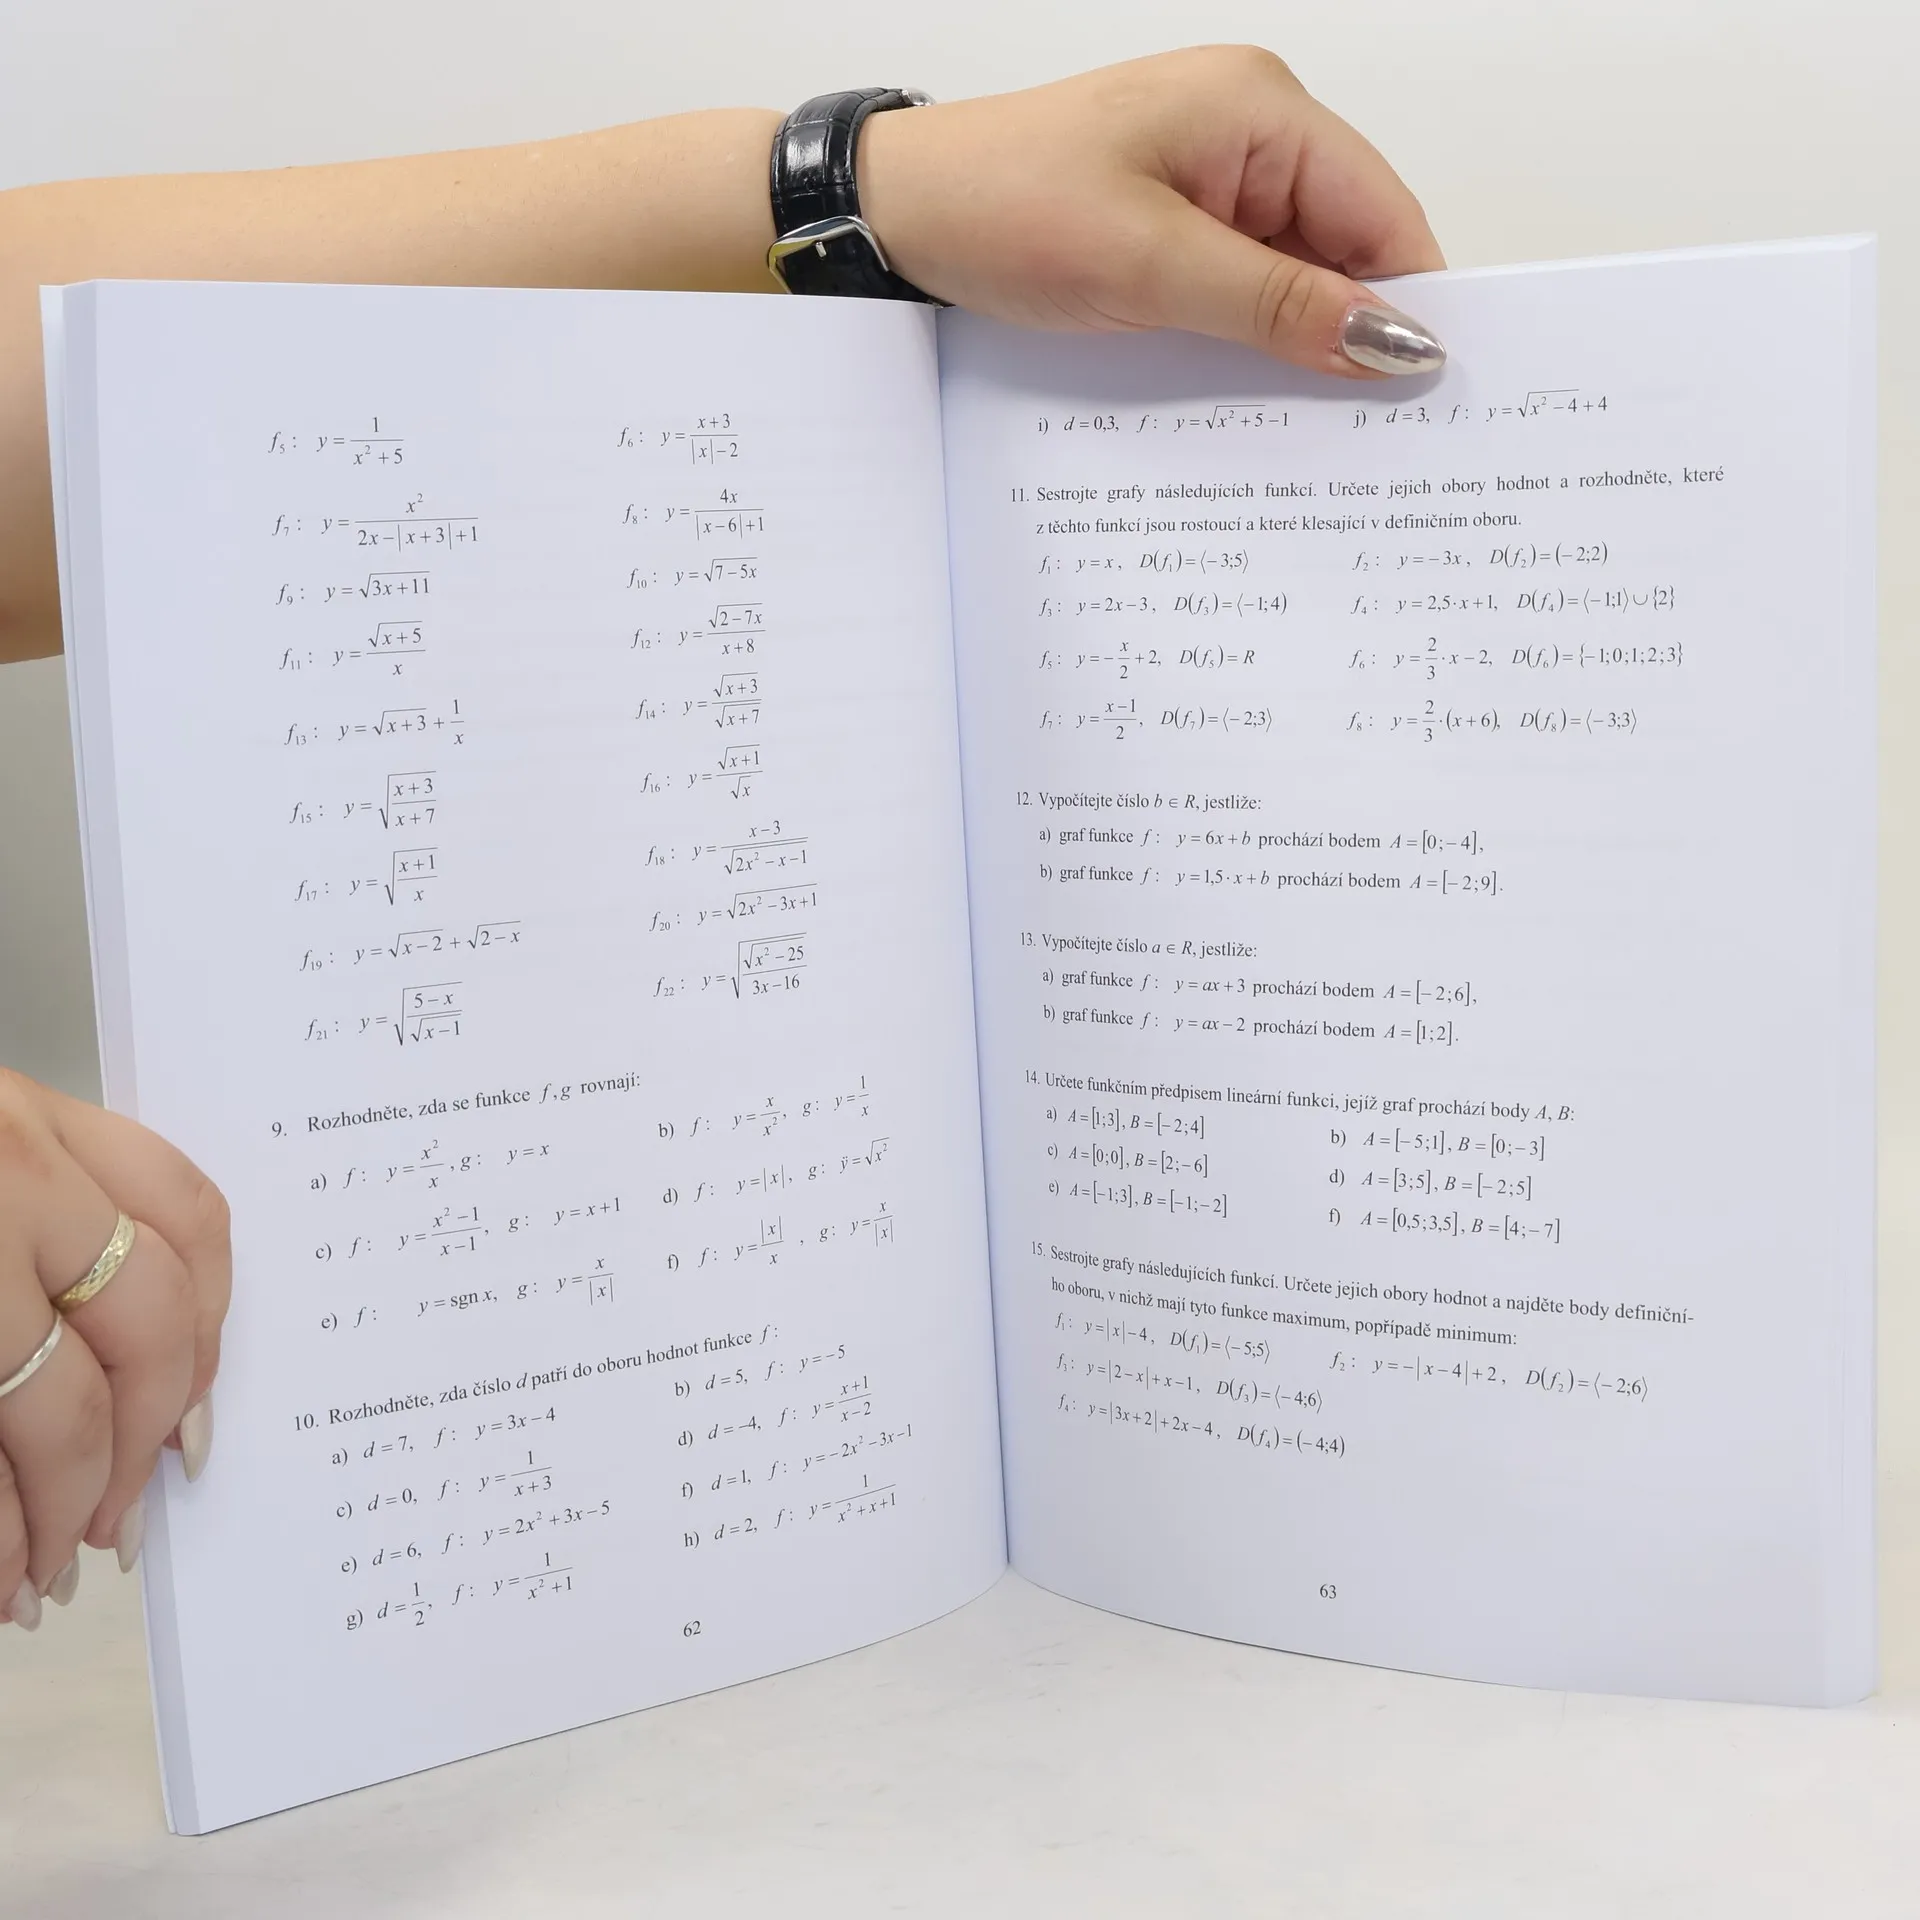 f₅: y = 1/(x² + 5) f₆: y = (x + 3)/(|x| − 2)
f₇: y = x²/(2x − |x + 3| + 1) f₈: y = 4x/(|x − 6| + 1)
f₉: y = √(3x + 11) f₁₀: y = √(7 − 5x)
f₁₁: y = √(x + 5)/x f₁₂: y = √(2 − 7x)/(x + 8)
f₁₃: y = √(x + 3) + 1/x f₁₄: y = √(x + 3)/√(x + 7)
f₁₅: y = √((x + 3)/(x + 7)) f₁₆: y = √(x + 1)/√x
f₁₇: y = √((x + 1)/x) f₁₈: y = (x − 3)/√(2x² − x − 1)
f₁₉: y = √(x − 2) + √(2 − x) f₂₀: y = √(2x² − 3x + 1)
f₂₁: y = √((5 − x)/√(x − 1)) f₂₂: y = √(√(x² − 25)/(3x − 16))
9. Rozhodněte, zda se funkce f, g rovnají:
a) f: y = x²/x, g: y = x b) f: y = x/x², g: y = 1/x
c) f: y = (x² − 1)/(x − 1), g: y = x + 1 d) f: y = |x|, g: ÿ = √(x²)
e) f: y = sgn x, g: y = x/|x| f) f: y = |x|/x, g: y = x/|x|
10. Rozhodněte, zda číslo d patří do oboru hodnot funkce f:
a) d = 7, f: y = 3x − 4 b) d = 5, f: y = −5
c) d = 0, f: y = 1/(x + 3) d) d = −4, f: y = (x + 1)/(x − 2)
e) d = 6, f: y = 2x² + 3x − 5 f) d = 1, f: y = −2x² − 3x − 1
g) d = 1/2, f: y = 1/(x² + 1) h) d = 2, f: y = 1/(x² + x + 1)
62
i) d = 0,3, f: y = √(x² + 5) − 1 j) d = 3, f: y = √(x² − 4) + 4
11. Sestrojte grafy následujících funkcí. Určete jejich obory hodnot a rozhodněte, které
z těchto funkcí jsou rostoucí a které klesající v definičním oboru.
f₁: y = x, D(f₁) = ⟨−3;5⟩ f₂: y = −3x, D(f₂) = (−2;2)
f₃: y = 2x − 3, D(f₃) = ⟨−1;4) f₄: y = 2,5·x + 1, D(f₄) = ⟨−1;1⟩ ∪ {2}
f₅: y = −x/2 + 2, D(f₅) = R f₆: y = 2/3·x − 2, D(f₆) = {−1;0;1;2;3}
f₇: y = (x − 1)/2, D(f₇) = ⟨−2;3⟩ f₈: y = 2/3·(x + 6), D(f₈) = ⟨−3;3⟩
12. Vypočítejte číslo b ∈ R, jestliže:
a) graf funkce f: y = 6x + b prochází bodem A = [0;−4],
b) graf funkce f: y = 1,5·x + b prochází bodem A = [−2;9].
13. Vypočítejte číslo a ∈ R, jestliže:
a) graf funkce f: y = ax + 3 prochází bodem A = [−2;6],
b) graf funkce f: y = ax − 2 prochází bodem A = [1;2].
14. Určete funkčním předpisem lineární funkci, jejíž graf prochází body A, B:
a) A = [1;3], B = [−2;4] b) A = [−5;1], B = [0;−3]
c) A = [0;0], B = [2;−6] d) A = [3;5], B = [−2;5]
e) A = [−1;3], B = [−1;−2] f) A = [0,5;3,5], B = [4;−7]
15. Sestrojte grafy následujících funkcí. Určete jejich obory hodnot a najděte body definiční-
ho oboru, v nichž mají tyto funkce maximum, popřípadě minimum:
f₁: y = |x| − 4, D(f₁) = ⟨−5;5⟩ f₂: y = −|x − 4| + 2, D(f₂) = ⟨−2;6⟩
f₃: y = |2 − x| + x − 1, D(f₃) = ⟨−4;6⟩
f₄: y = |3x + 2| + 2x − 4, D(f₄) = (−4;4)
63